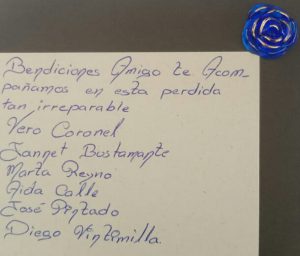 Bendiciones Amigo te Acom-
pañamos en esta perdida
tan irreparable
Vero Coronel
Jannet Bustamante
Marta Reyno
Aida Calle
José Pintado
Diego Vintimilla.